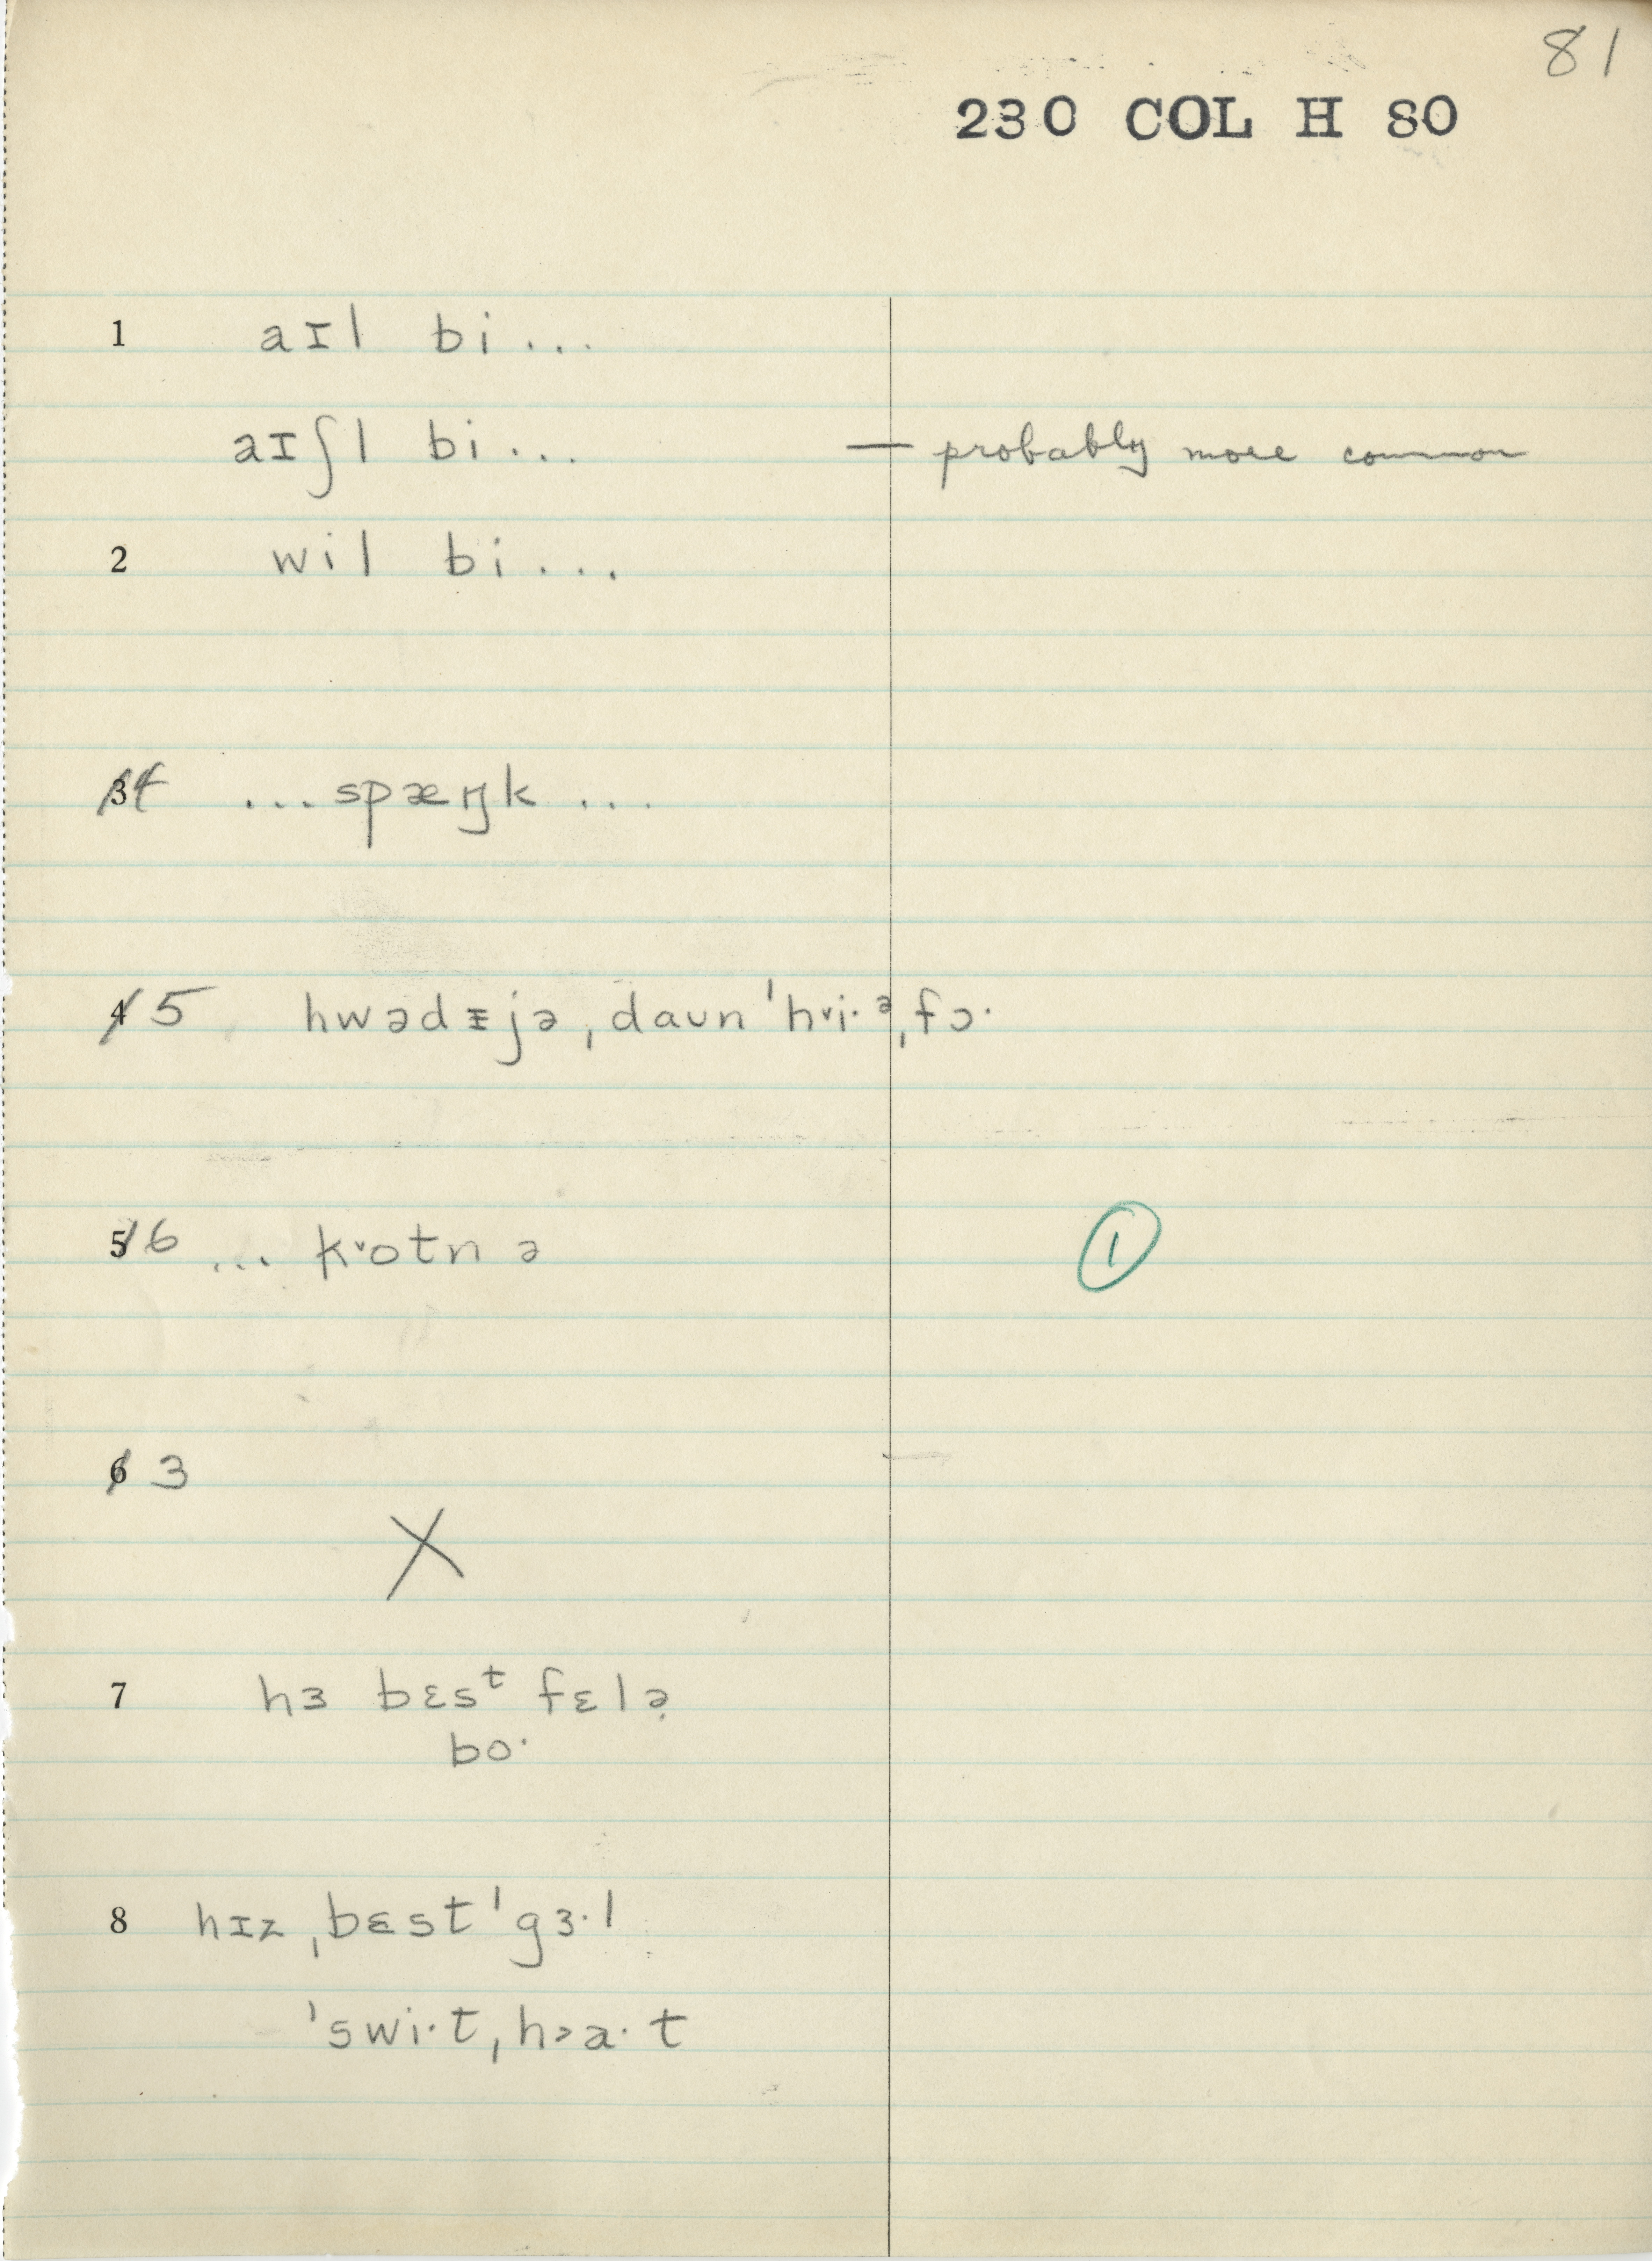 81
230 COL H 80
1 aɪl bi...
aɪʃl bi... — probably more common
2 wil bi...
3 4 ...spæŋk ...
4 5 hwədᵻjə ˌdaʊn ˈh˅i·ᵊˌfɔ·
5 6 ... k˅otn ə
1
6 3
X
7 hɜ bɛsᵗ fɛlə̣
bo·
8 hɪz ˌbɛst ˈgɜ·l
ˈswi·tˌh˃a·t